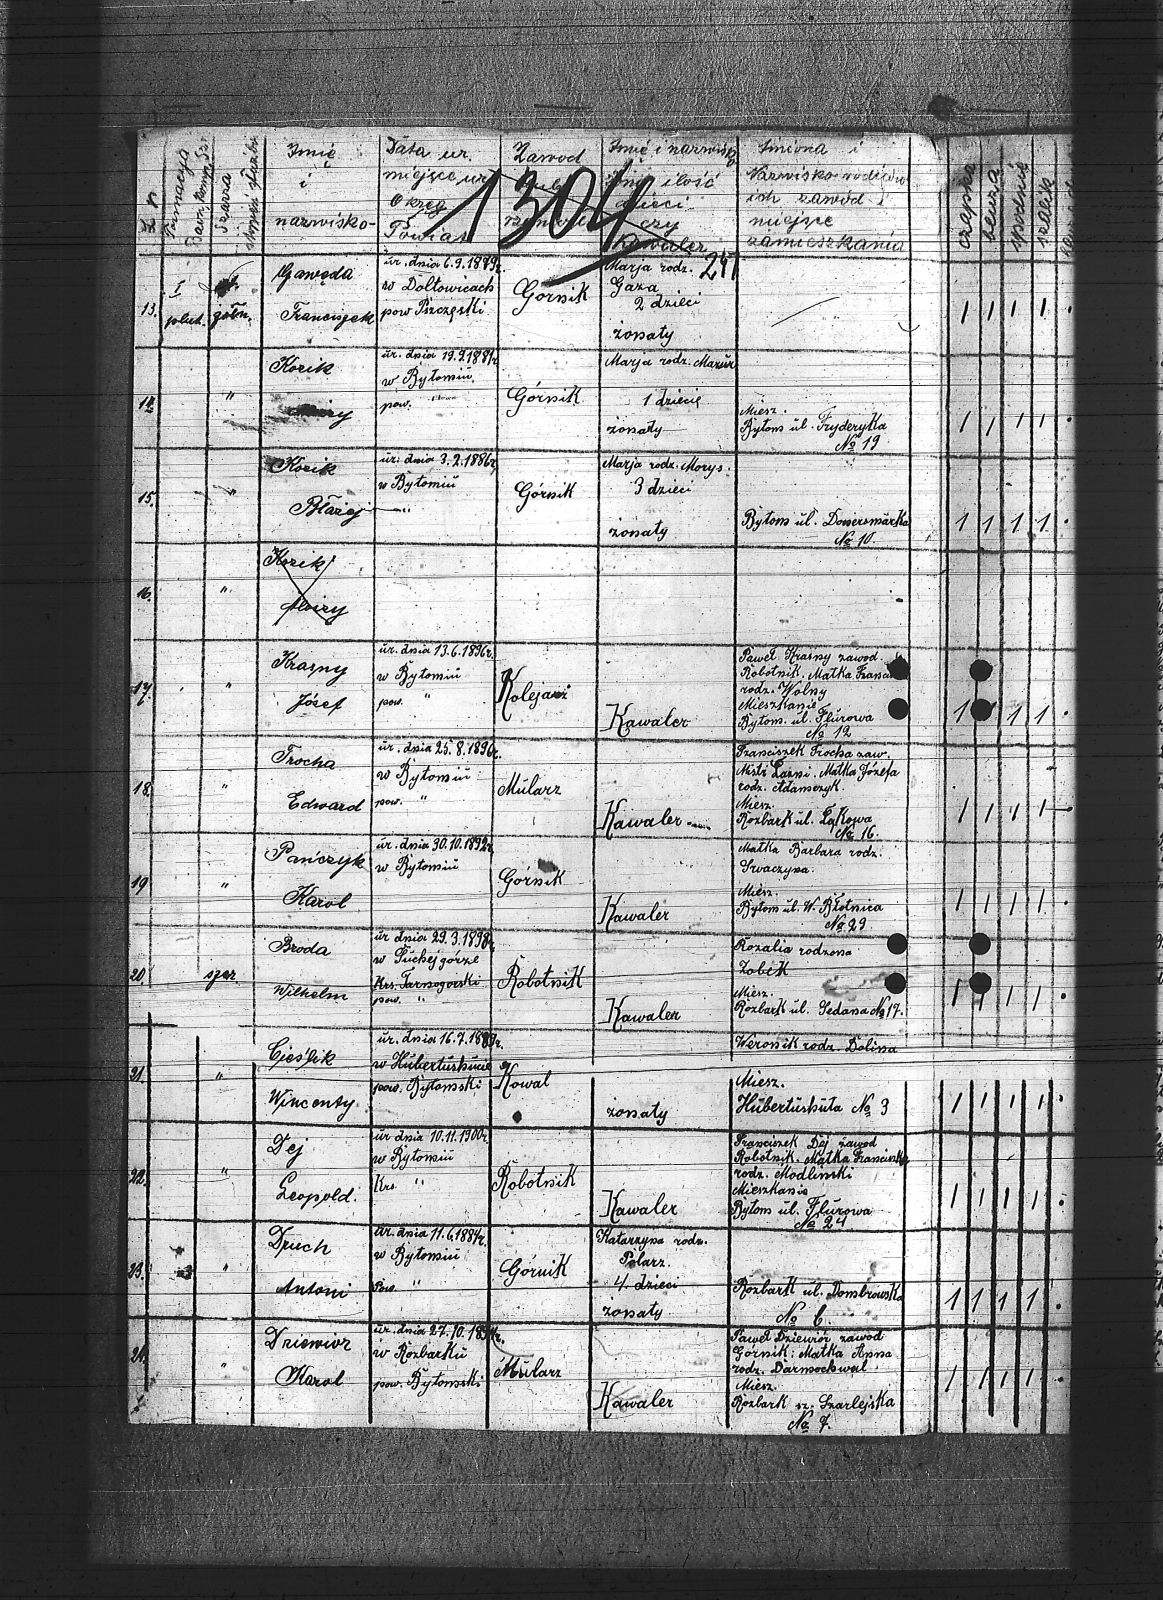 L n
Formacja
Szarża
Imię
i
nazwisko-
Data ur.
miejsce ur.
Okręg
Powiat
Zawód
Imię i nazwisko
ilość
dzieci
czy
Kawaler
Imiona i
Nazwisko rodziców
ich zawód i
miejsce
zamieszkania
czapka
bluza
spodnie
szalik
1304
241
13.
plut.
żołn.
Gawęda
Franciszek
ur. dnia 6.9.1889r.
w Dołtowicach
pow Pszczęski
Górnik
Marja rodz.
Gaza
2 dzieci
żonaty
1 1 1 1 .
14.
"
Kozik
ur. dnia 19.9.1881r.
w Bytomiu
pow. "
Górnik
Marja rodz. Mazur
1 dziecię
żonaty
Miesz.
Bytom ul. Fryderyka
No 19
1 1 1 1 .
15.
"
Kozik
Błażej
ur. dnia 3.2.1886r.
w Bytomiu
"
Górnik
Marja rodz. Morys.
3 dzieci
żonaty
Bytom ul. Donersmarka
No 10.
1 1 1 1 .
16.
"
Kozik
17.
"
Krasny
Józef
ur. dnia 13.6.1896r.
w Bytomiu
pow. "
Kolejarz
Kawaler
Paweł Krasny zawod.
Robotnik. Matka
rodz. Wolny
Mieszkanie
Bytom. ul. Flurowa
No 12
1 1 1 .
18.
"
Trocha
Edward
ur. dnia 25.8.1896r.
w Bytomiu
pow. "
Mularz
Kawaler
Franciszek Trocha zaw.
Mistr Łazni. Matka Józefa
rodz. Adamczyk.
Miesz.
Rozbark ul. Łąkowa
No 16.
1 1 1 1 .
19
"
Pańczyk
Karol
ur. dnia 30.10.1892r.
w Bytomiu
Górnik
Kawaler
Matka Barbara rodz.
Swaczyna.
Miesz.
Bytom ul. W. Błotnica
No 29
1 1 1 1 .
20.
szer.
Broda
Wilhelm
ur dnia 29.3.1898r.
w Suchej górze
Krs. Tarnogorski
pow. "
Robotnik
Kawaler
Rozalia rodzona
Zobek
Miesz.
Rozbark ul. Sedana No 17.
1 1 1 .
21.
"
Cieślik
Wincenty
ur. dnia 16.7.1889r.
w Hubertushucie
pow. Bytomski
Kowal
żonaty
Weronik rodz. Dolina
Miesz.
Hubertushuta No 3
1 1 1 1 .
22.
"
Dej
Leopold.
ur dnia 10.11.1900r.
w Bytomiu
Krs. "
Robotnik
Kawaler
Franciszek Dej zawod
Robotnik. Matka Franciszka
rodz. Modlinski
Mieszkanie
Bytom ul. Flurowa
No 24
1 1 1 1 .
23.
"
Druch
Antoni
ur. dnia 11.6.1884r.
w Bytomiu
Pow. "
Górnik
Katarzyna rodz.
Polarz.
4. dzieci
żonaty
Rozbark ul. Dombrowska
No 6.
1 1 1 1 .
24.
"
Dziewior
Karol
ur. dnia 27.10.1894r.
w Rozbarku
pow. Bytomski
Mularz
Kawaler
Paweł Dziewiór zawod
Górnik: Matka Anna
rodz. Darmochwal.
Miesz.
Rozbark sz. Szarlejska
No 7.
1 1 1 1 .